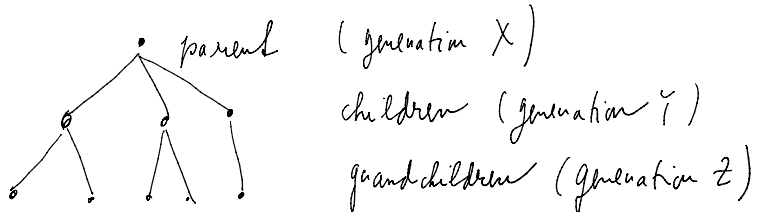 parent (generation X)
children (generation Y)
grandchildren (generation Z)